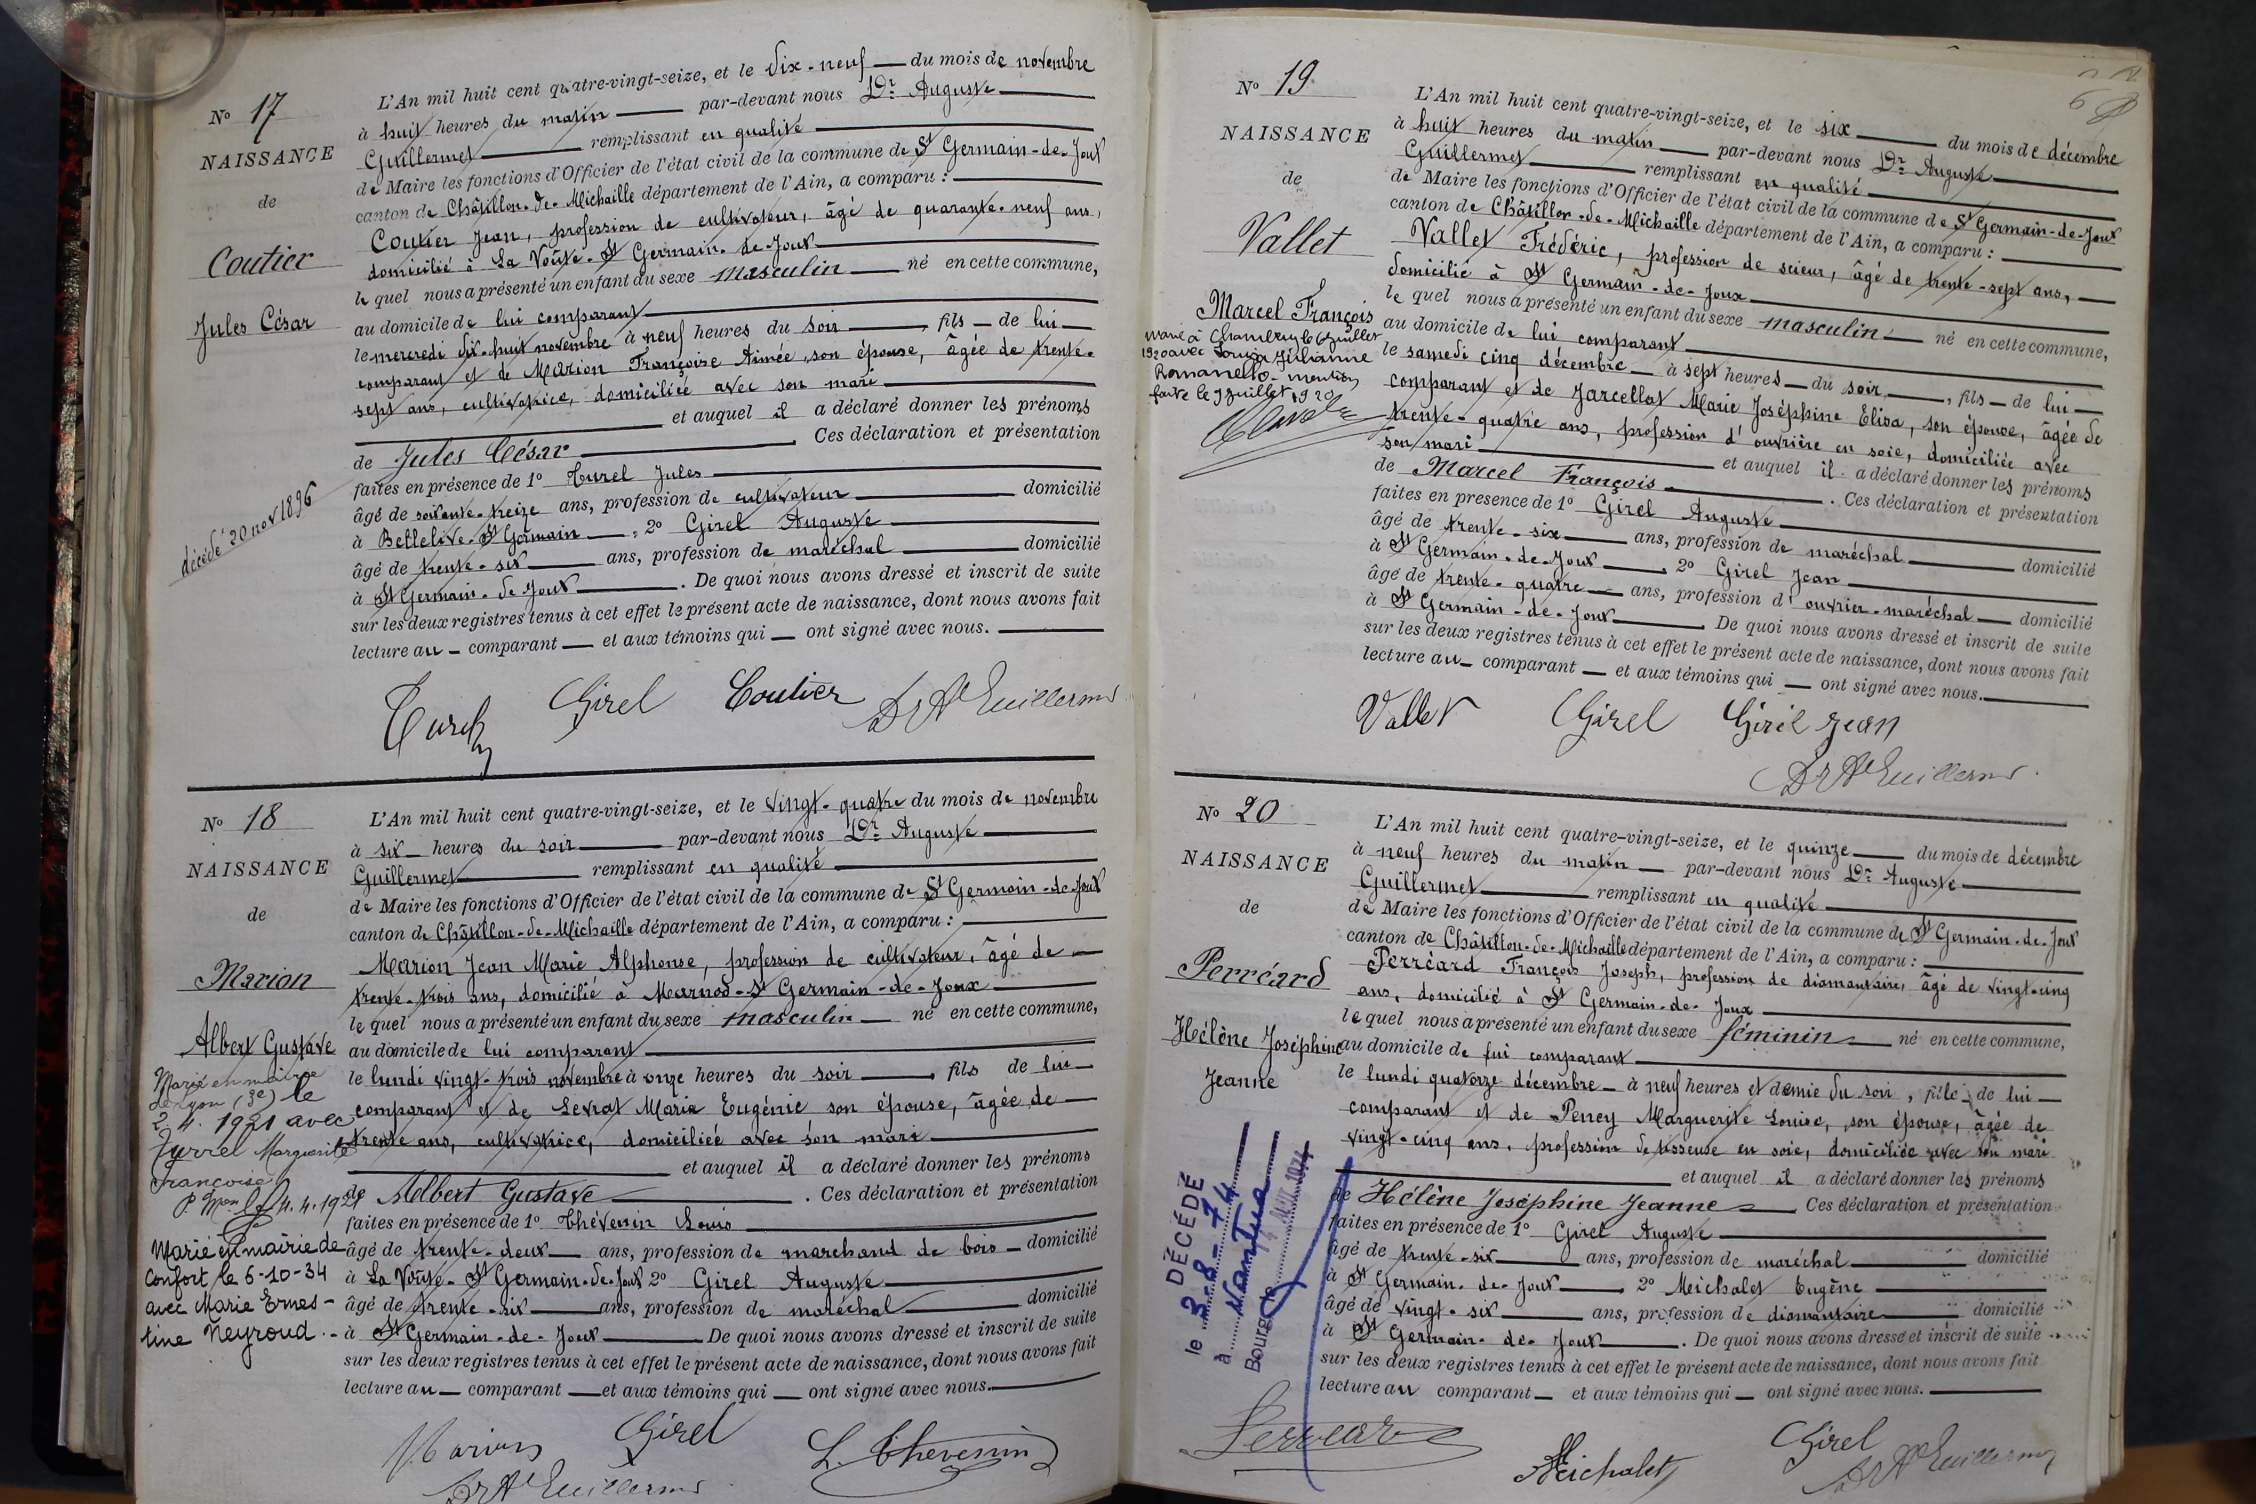 No 17
NAISSANCE
de
Coutier
Jules César
décédé 20 nov 1896
L'An mil huit cent quatre-vingt-seize, et le dix-neuf du mois de novembre
à huit heures du matin par-devant nous Dr Auguste
Guillermet remplissant en qualité
de Maire les fonctions d'Officier de l'état civil de la commune de St Germain-de-Joux
canton de Châtillon-de-Michaille département de l'Ain, a comparu :
Coutier Jean, profession de cultivateur, âgé de quarante-neuf ans,
domicilié à La Voûte-St Germain-de-Joux
le quel nous a présenté un enfant du sexe masculin né en cette commune,
au domicile de lui comparant
le mercredi dix-huit novembre à neuf heures du soir, fils de lui
comparant et de Marion Françoise Aimée, son épouse, âgée de trente-
sept ans, cultivatrice, domiciliée avec son mari
et auquel il a déclaré donner les prénoms
de Jules César. Ces déclaration et présentation
faites en présence de 1° Turel Jules
âgé de soixante-treize ans, profession de cultivateur domicilié
à Bellelive-St Germain, 2° Girel Auguste
âgé de trente-six ans, profession de maréchal domicilié
à St Germain-de-Joux. De quoi nous avons dressé et inscrit de suite
sur les deux registres tenus à cet effet le présent acte de naissance, dont nous avons fait
lecture au comparant et aux témoins qui ont signé avec nous.
Girel Coutier Dr Ate Guillermet
No 18
NAISSANCE
de
Marion
Albert Gustave
Marié en mairie
de Lyon (3e) le
2.4.1921 avec
Jurrel Marguerite
Françoise
4.4.1921
Marié en mairie de
Confort, le 6-10-34
avec Marie Ernes-
tine Neyroud.-
L'An mil huit cent quatre-vingt-seize, et le vingt-quatre du mois de novembre
à six heures du soir par-devant nous Dr Auguste
Guillermet remplissant en qualité
de Maire les fonctions d'Officier de l'état civil de la commune de St Germain-de-Joux
canton de Châtillon-de-Michaille département de l'Ain, a comparu :
Marion Jean Marie Alphonse, profession de cultivateur, âgé de
trente-trois ans, domicilié à Marnod-St Germain-de-Joux
le quel nous a présenté un enfant du sexe masculin né en cette commune,
au domicile de lui comparant
le lundi vingt-trois novembre à onze heures du soir, fils de lui
comparant et de Levrat Marie Eugénie son épouse, âgée de
trente ans, cultivatrice, domiciliée avec son mari
et auquel il a déclaré donner les prénoms
de Albert Gustave. Ces déclaration et présentation
faites en présence de 1° Thévenin Louis
âgé de trente-deux ans, profession de marchand de bois domicilié
à La Voûte-St Germain-de-Joux 2° Girel Auguste
âgé de trente-six ans, profession de maréchal domicilié
à St Germain-de-Joux De quoi nous avons dressé et inscrit de suite
sur les deux registres tenus à cet effet le présent acte de naissance, dont nous avons fait
lecture au comparant et aux témoins qui ont signé avec nous.
Marion Girel L. Thevenin
Dr Ate Guillermet
No 19
NAISSANCE
de
Vallet
Marcel François
marié à Chambéry le 6 juillet
1920 avec Louisa Julianne
Romanello - mention
faite le 9 juillet 1920
L'An mil huit cent quatre-vingt-seize, et le six du mois de décembre
à huit heures du matin par-devant nous Dr Auguste
Guillermet remplissant en qualité
de Maire les fonctions d'Officier de l'état civil de la commune de St Germain-de-Joux
canton de Châtillon-de-Michaille département de l'Ain, a comparu :
Vallet Frédéric, profession de scieur, âgé de trente-sept ans,
domicilié à St Germain-de-Joux
le quel nous a présenté un enfant du sexe masculin né en cette commune,
au domicile de lui comparant
le samedi cinq décembre à sept heures du soir, fils de lui
comparant et de Jarcellat Marie Joséphine Elisa, son épouse, âgée de
trente-quatre ans, profession d'ouvrière en soie, domiciliée avec
son mari et auquel il a déclaré donner les prénoms
de Marcel François. Ces déclaration et présentation
faites en présence de 1° Girel Auguste
âgé de trente-six ans, profession de maréchal domicilié
à St Germain-de-Joux, 2° Girel Jean
âgé de trente-quatre ans, profession d'ouvrier-maréchal domicilié
à St Germain-de-Joux. De quoi nous avons dressé et inscrit de suite
sur les deux registres tenus à cet effet le présent acte de naissance, dont nous avons fait
lecture au comparant et aux témoins qui ont signé avec nous.
Vallet Girel Girel Jean
Dr Ate Guillermet
No 20
NAISSANCE
de
Perréard
Hélène Joséphine
Jeanne
DÉCÉDÉ
le 3-8-74
à Nantua
Bourg, le
L'An mil huit cent quatre-vingt-seize, et le quinze du mois de décembre
à neuf heures du matin par-devant nous Dr Auguste
Guillermet remplissant en qualité
de Maire les fonctions d'Officier de l'état civil de la commune de St Germain-de-Joux
canton de Châtillon-de-Michaille département de l'Ain, a comparu :
Perréard François Joseph, profession de diamantaire, âgé de vingt-cinq
ans, domicilié à St Germain-de-Joux
le quel nous a présenté un enfant du sexe féminin né en cette commune,
au domicile de lui comparant
le lundi quatorze décembre à neuf heures et demie du soir, fille de lui
comparant et de Peney Marguerite Louise, son épouse, âgée de
vingt-cinq ans, profession de tisseuse en soie, domiciliée avec son mari
et auquel il a déclaré donner les prénoms
de Hélène Joséphine Jeanne Ces déclaration et présentation
faites en présence de 1° Girel Auguste
âgé de trente-six ans, profession de maréchal domicilié
à St Germain-de-Joux, 2° Meichalet Eugène
âgé de vingt-six ans, profession de diamantaire domicilié
à St Germain-de-Joux. De quoi nous avons dressé et inscrit de suite
sur les deux registres tenus à cet effet le présent acte de naissance, dont nous avons fait
lecture au comparant et aux témoins qui ont signé avec nous.
Perreard Meichalet Girel
Dr Ate Guillermet